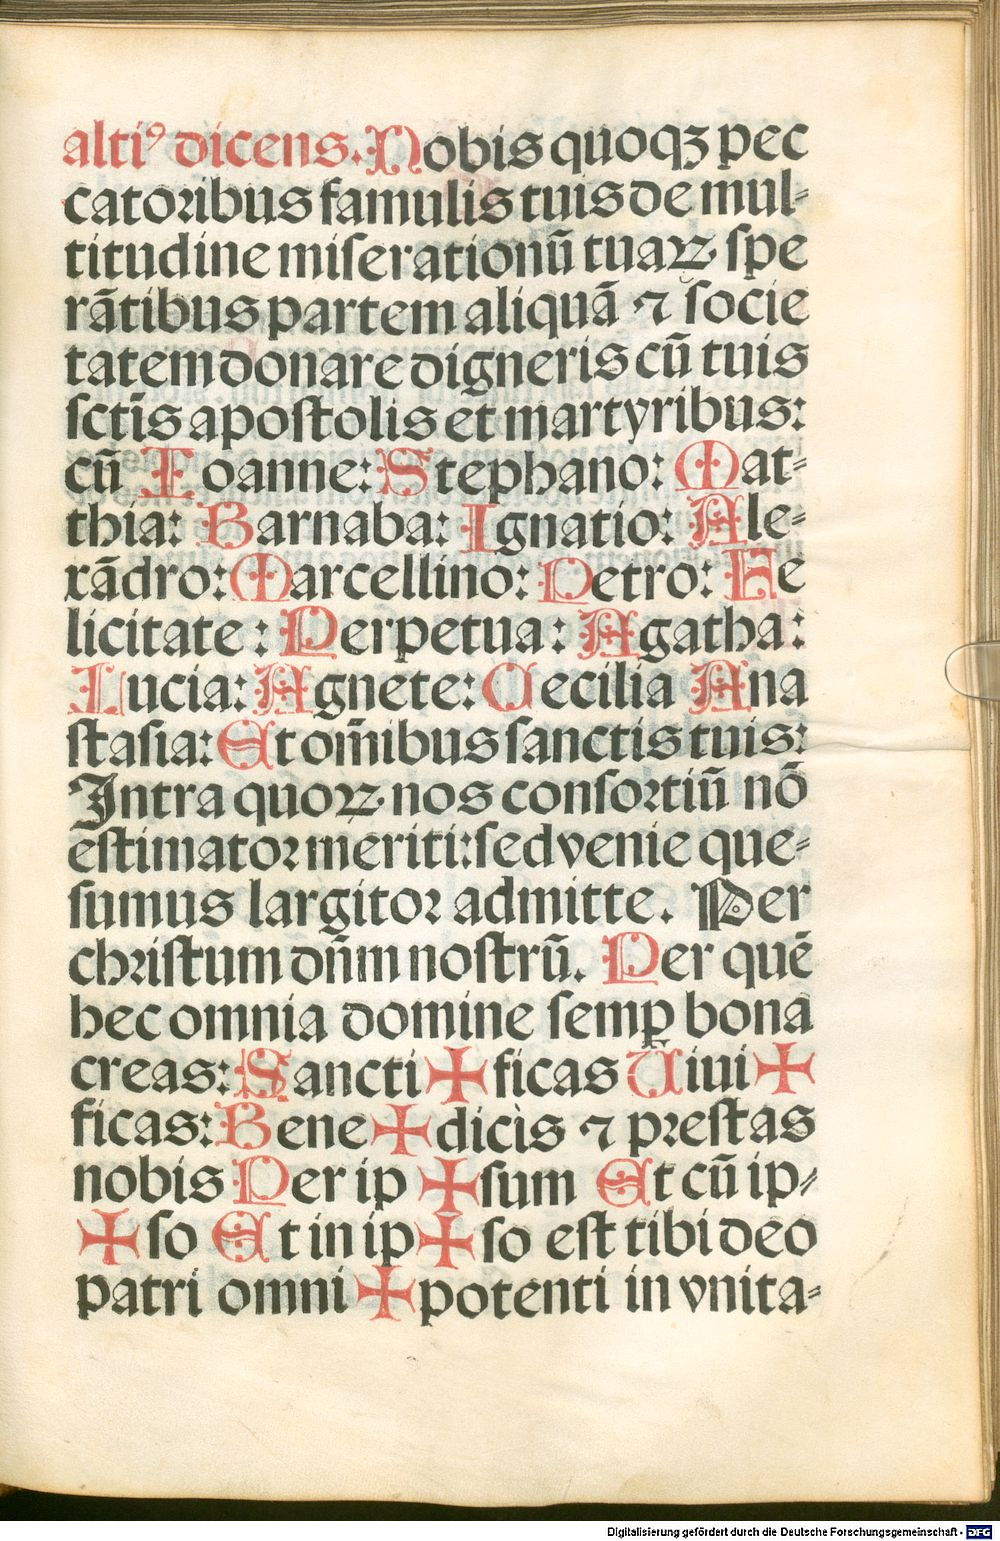 altiꝰ dicens. Nobis quoqꝫ pec
catoribus famulis tuis de mul⸗
titudine miſerationū tuaꝝ ſpe
rātibus partem aliquā ⁊ ſocie
tatem donare digneris cū tuis
ſctīs apoſtolis et martyribus:
cū Ioanne: Stephano: Mat⸗
thia: Barnaba: Ignatio: Ale⸗
xādro: Marcellino: Petro: He
licitate: Perpetua: Agatha:
Lucia: Agnete: Cecilia Ana
ſtaſia: Et om̄ibus ſanctis tuis:
Intra quoꝝ nos conſortiū nō
eſtimator meriti: ſed venie que⸗
ſumus largitor admitte. Per
chriſtum dn̄m noſtrū. Per quē
hec omnia domine ſemꝑ bona
creas: Sancti✠ficas Uiui✠
ficas: Bene✠dicis ⁊ preſtas
nobis Per ip✠ſum Et cū ip⸗
✠ſo Et in ip✠ſo eſt tibi deo
patri omni✠potenti in vnita⸗
Digitalisierung gefördert durch die Deutsche Forschungsgemeinschaft - DFG